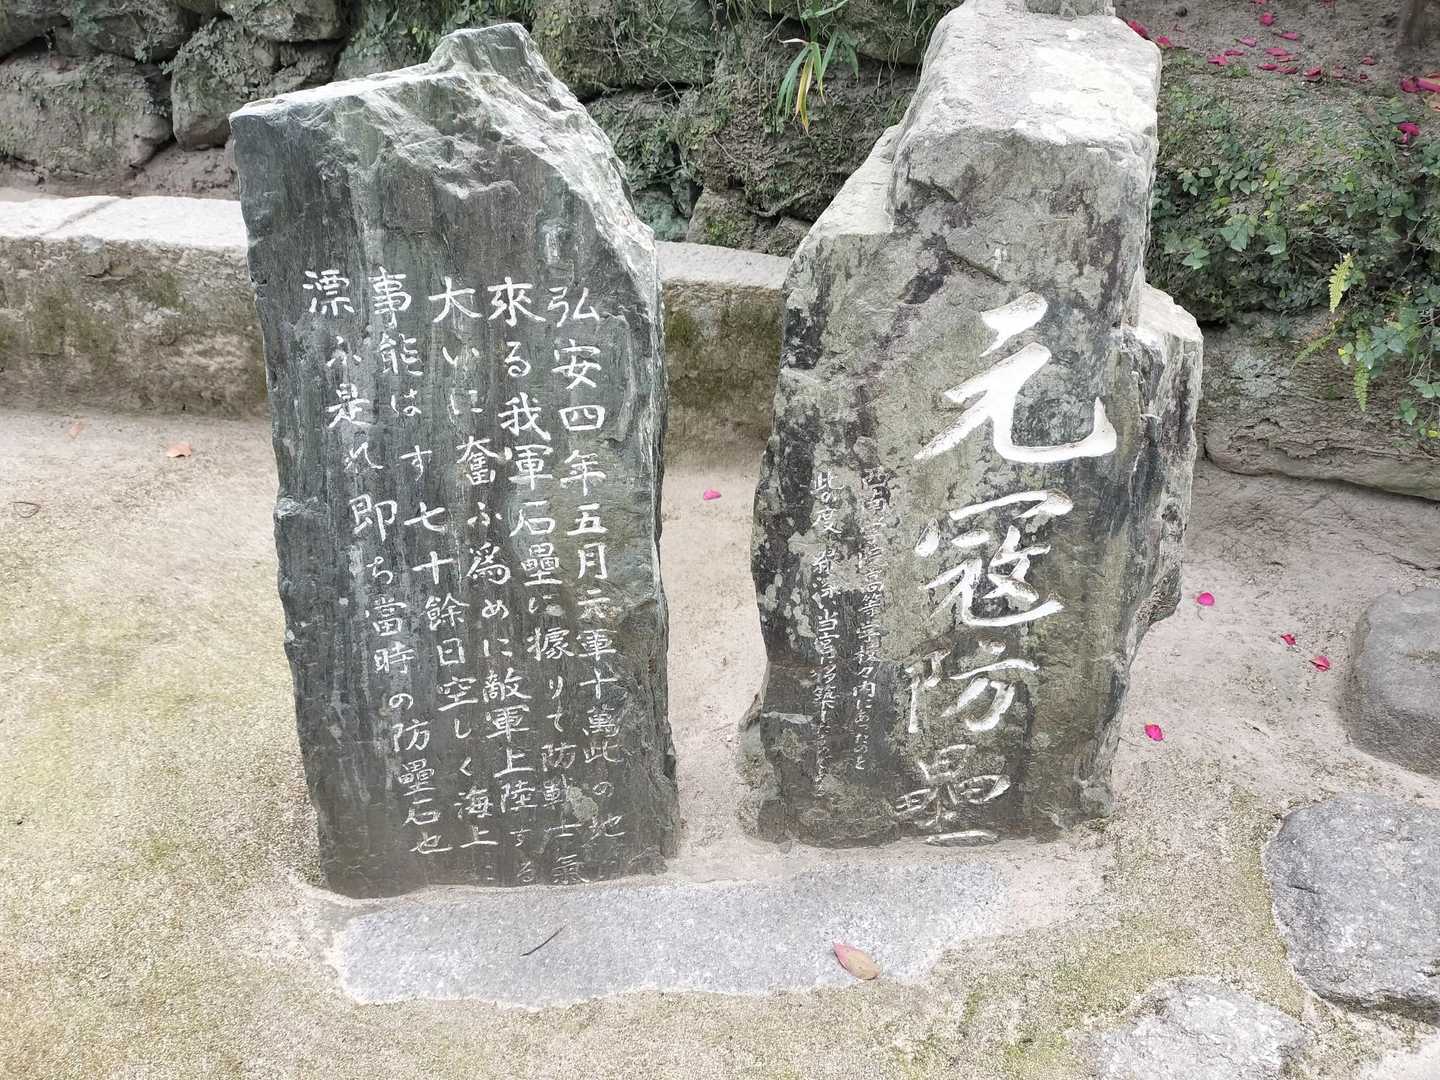 元寇防壘
西南学院高等学校々内にあったのを
此の度 縁深い当宮に移築したものである
弘安四年五月元軍十萬此の地に
來る我軍石壘に據りて防戰士氣
大いに奮ふ爲めに敵軍上陸する
事能はす七十餘日空しく海上に
漂ふ是れ即ち當時の防壘石也